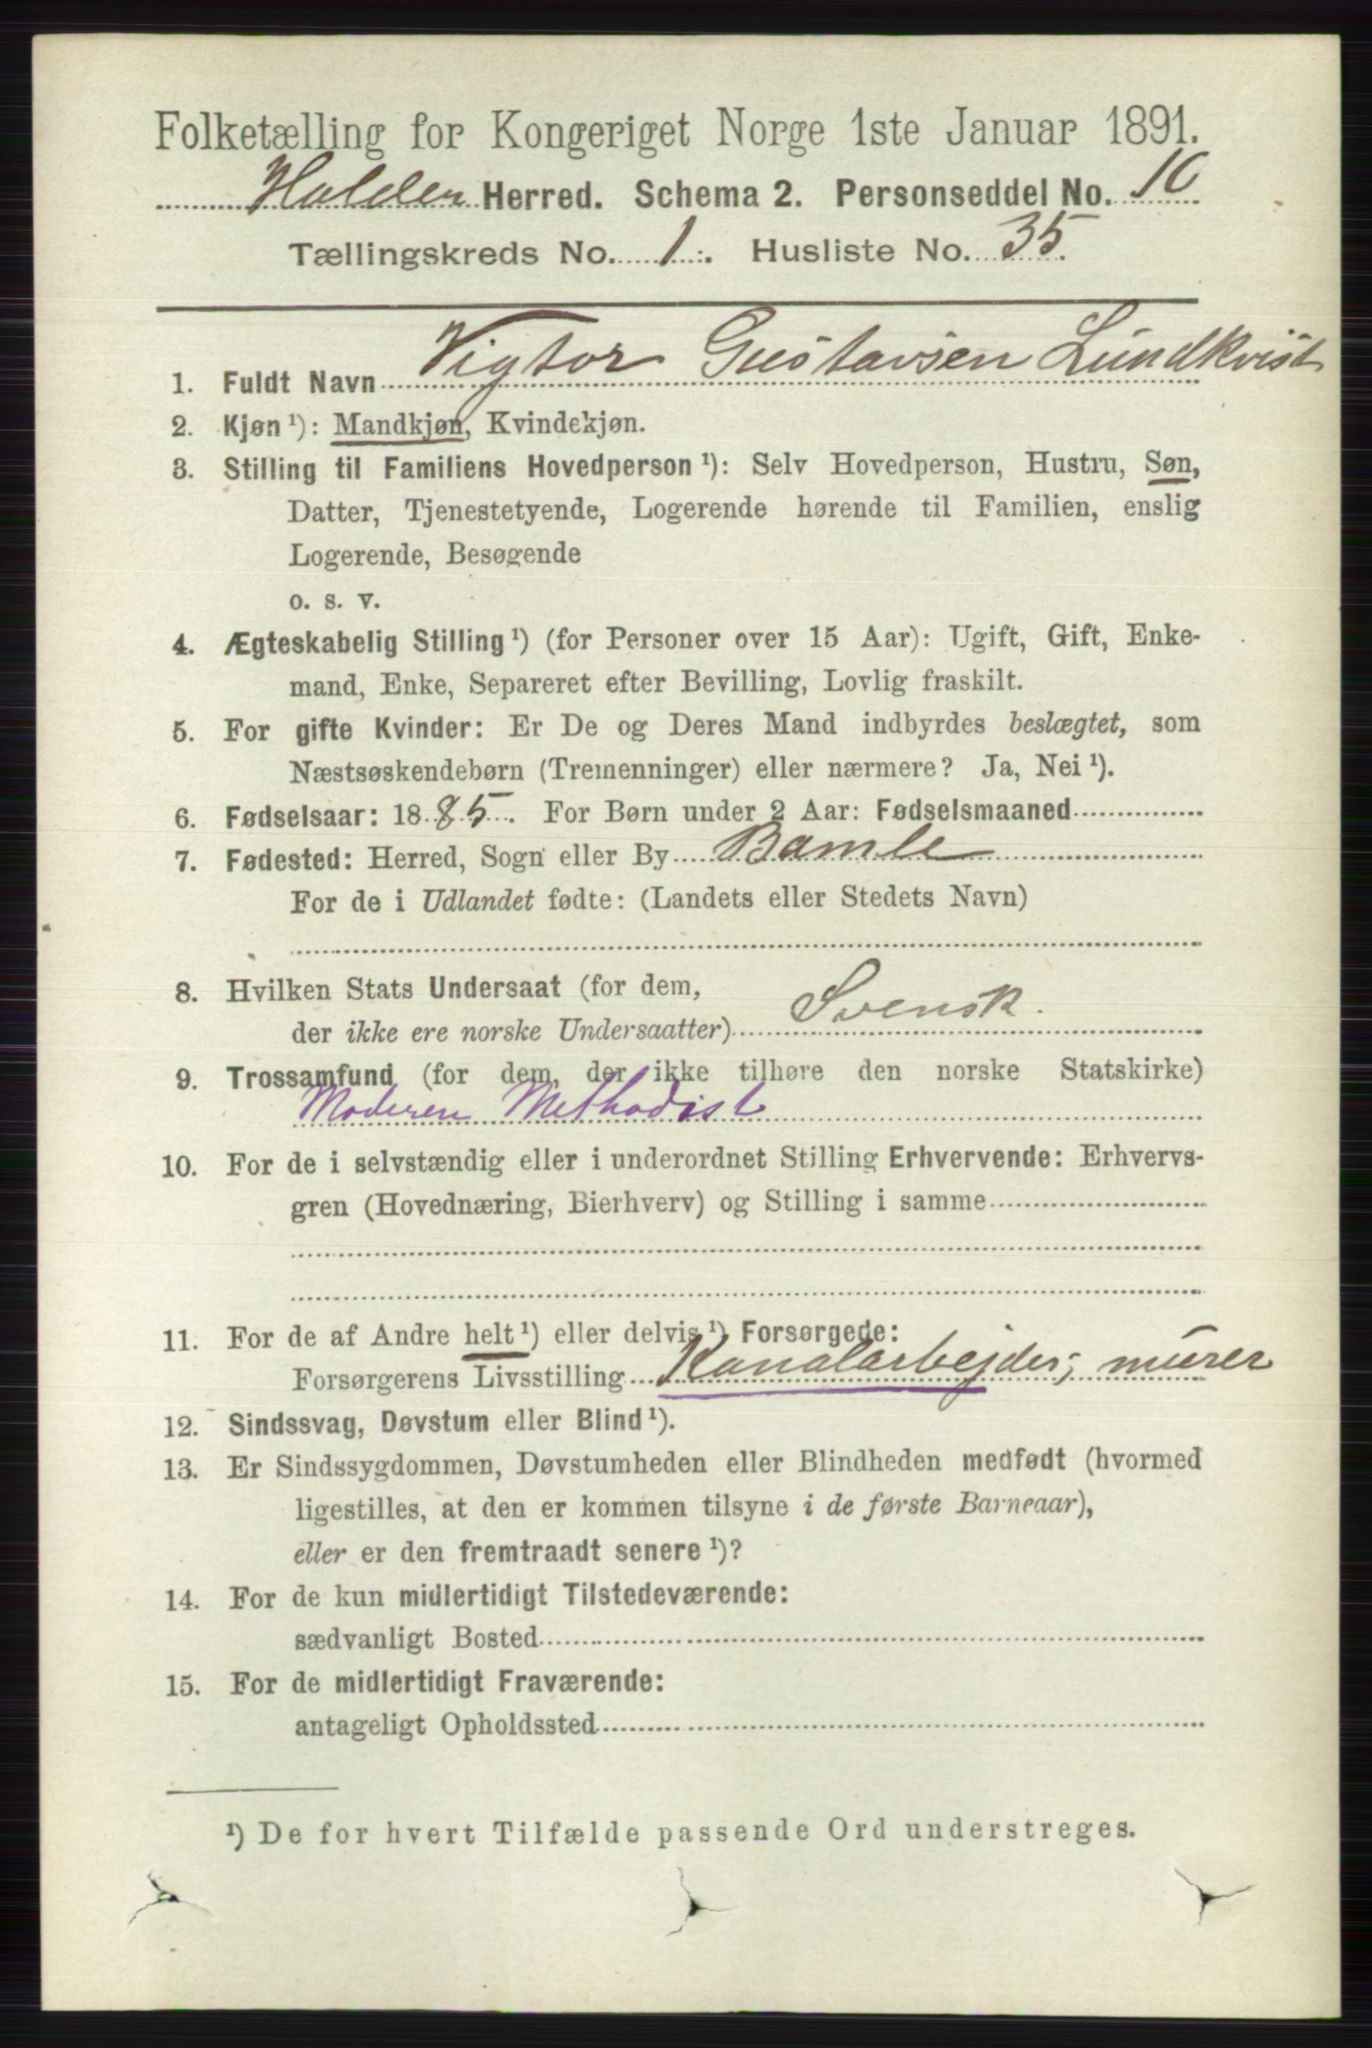 Folketælling for Kongeriget Norge 1ste Januar 1891.
Holden Herred. Schema 2. Personseddel No. 10
Tællingskreds No. 1. Husliste No. 35.
1. Fuldt Navn Vigtor Gustavsen Lundkvist
2. Kjøn ¹): Mandkjøn, Kvindekjøn.
3. Stilling til Familiens Hovedperson ¹): Selv Hovedperson, Hustru, Søn,
Datter, Tjenestetyende, Logerende hørende til Familien, enslig
Logerende, Besøgende
o. s. v.
4. Ægteskabelig Stilling ¹) (for Personer over 15 Aar): Ugift, Gift, Enke-
mand, Enke, Separeret efter Bevilling, Lovlig fraskilt.
5. For gifte Kvinder: Er De og Deres Mand indbyrdes beslægtet, som
Næstsøskendebørn (Tremenninger) eller nærmere? Ja, Nei ¹).
6. Fødselsaar: 1885. For Børn under 2 Aar: Fødselsmaaned
7. Fødested: Herred, Sogn eller By Bamle
For de i Udlandet fødte: (Landets eller Stedets Navn)
8. Hvilken Stats Undersaat (for dem,
der ikke ere norske Undersaatter) Svensk.
9. Trossamfund (for dem, der ikke tilhøre den norske Statskirke)
Moderen Methodist
10. For de i selvstændig eller i underordnet Stilling Erhvervende: Erhvervs-
gren (Hovednæring, Bierhverv) og Stilling i samme
11. For de af Andre helt ¹) eller delvis ¹) Forsørgede:
Forsørgerens Livsstilling Kanalarbejder; murer
12. Sindssvag, Døvstum eller Blind ¹).
13. Er Sindssygdommen, Døvstumheden eller Blindheden medfødt (hvormed
ligestilles, at den er kommen tilsyne i de første Barneaar),
eller er den fremtraadt senere ¹)?
14. For de kun midlertidigt Tilstedeværende:
sædvanligt Bosted
15. For de midlertidigt Fraværende:
antageligt Opholdssted
¹) De for hvert Tilfælde passende Ord understreges.